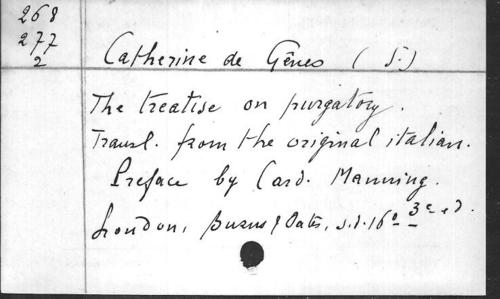 268
277
2
Catherine de Gênes (S.)
The treatise on purgatory.
Transl. from the original italian.
Preface by Card. Manning.
London, Burns & Oates, s.d. 16° 3e ed.